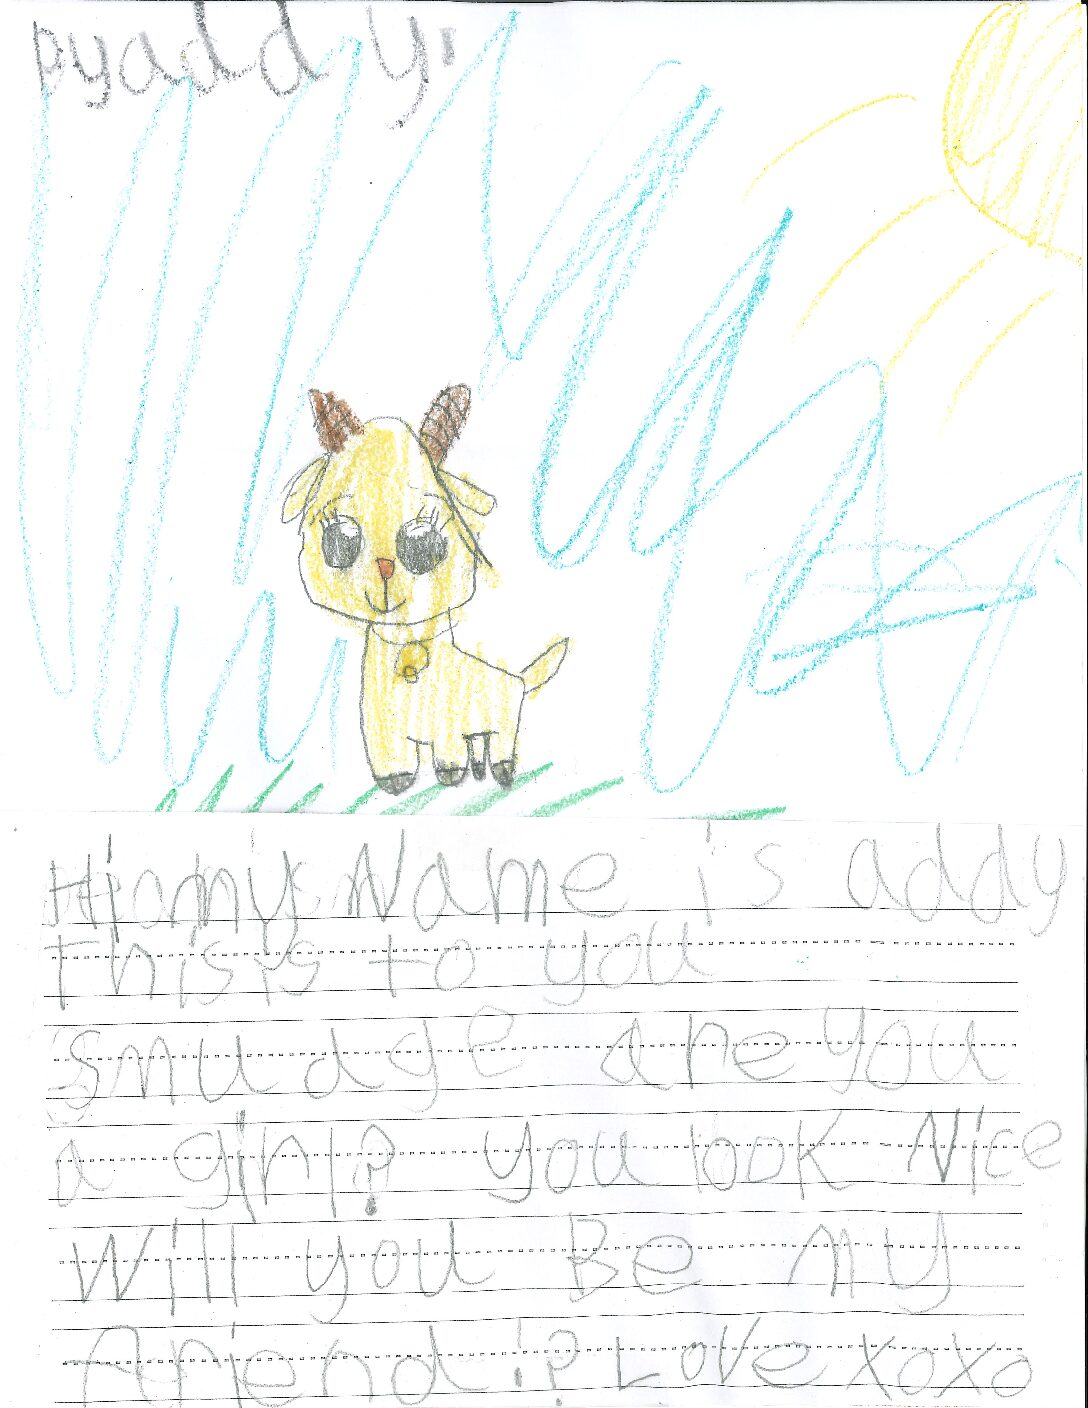 by addy
Hi my Name is addy
this is to you
smudge are you
a girl? you look Nice
Will you Be my
friend !? Love xoxo